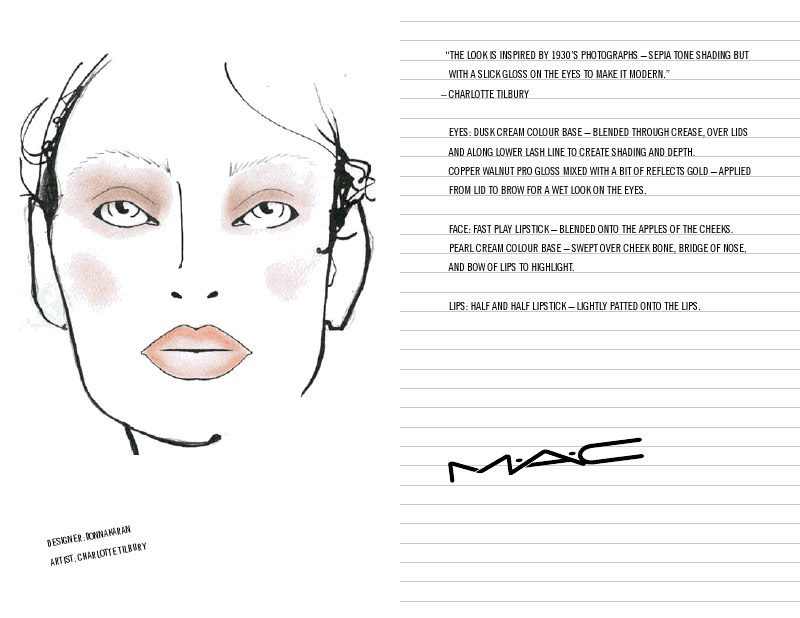 “THE LOOK IS INSPIRED BY 1930’S PHOTOGRAPHS – SEPIA TONE SHADING BUT
WITH A SLICK GLOSS ON THE EYES TO MAKE IT MODERN.”
– CHARLOTTE TILBURY
EYES: DUSK CREAM COLOUR BASE – BLENDED THROUGH CREASE, OVER LIDS
AND ALONG LOWER LASH LINE TO CREATE SHADING AND DEPTH.
COPPER WALNUT PRO GLOSS MIXED WITH A BIT OF REFLECTS GOLD – APPLIED
FROM LID TO BROW FOR A WET LOOK ON THE EYES.
FACE: FAST PLAY LIPSTICK – BLENDED ONTO THE APPLES OF THE CHEEKS.
PEARL CREAM COLOUR BASE – SWEPT OVER CHEEK BONE, BRIDGE OF NOSE,
AND BOW OF LIPS TO HIGHLIGHT.
LIPS: HALF AND HALF LIPSTICK – LIGHTLY PATTED ONTO THE LIPS.
M·A·C
DESIGNER: DONNA KARAN
ARTIST: CHARLOTTE TILBURY